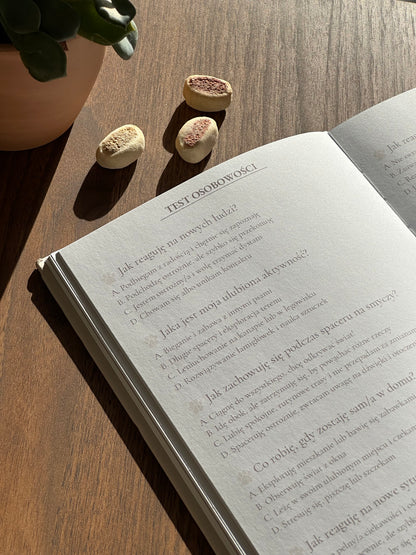 TEST OSOBOWOŚCI
Jak reaguję na nowych ludzi?
A. Podbiegam z radością i chętnie się zapoznaję
B. Podchodzę ostrożnie, ale szybko się przekonuję
C. Jestem ostrożny/a i wolę trzymać dystans
D. Chowam się albo unikam kontaktu
Jaka jest moja ulubiona aktywność?
A. Bieganie i zabawa z innymi psami
B. Długie spacery i eksploracja terenu
C. Leniuchowanie na kanapie lub w legowisku
D. Rozwiązywanie łamigłówek i nauka sztuczek
Jak zachowuję się podczas spaceru na smyczy?
A. Ciągnę do wszystkiego, chcę odkrywać świat!
B. Idę obok, ale zatrzymuję się, by powąchać różne rzeczy
C. Lubię spokojne, rutynowe trasy i nie przepadam za zmianami
D. Spaceruję ostrożnie, zwracam uwagę na dźwięki i otoczenie
Co robię, gdy zostaję sam/a w domu?
A. Eksploruję mieszkanie lub bawię się zabawkami
B. Obserwuję świat z okna
C. Leżę w swoim ulubionym miejscu i czekam
D. Stresuję się, piszczę lub szczekam
Jak reaguję na nowe
Jak rea
A. Nie
B.
C.
D.
Jak
A.
B.